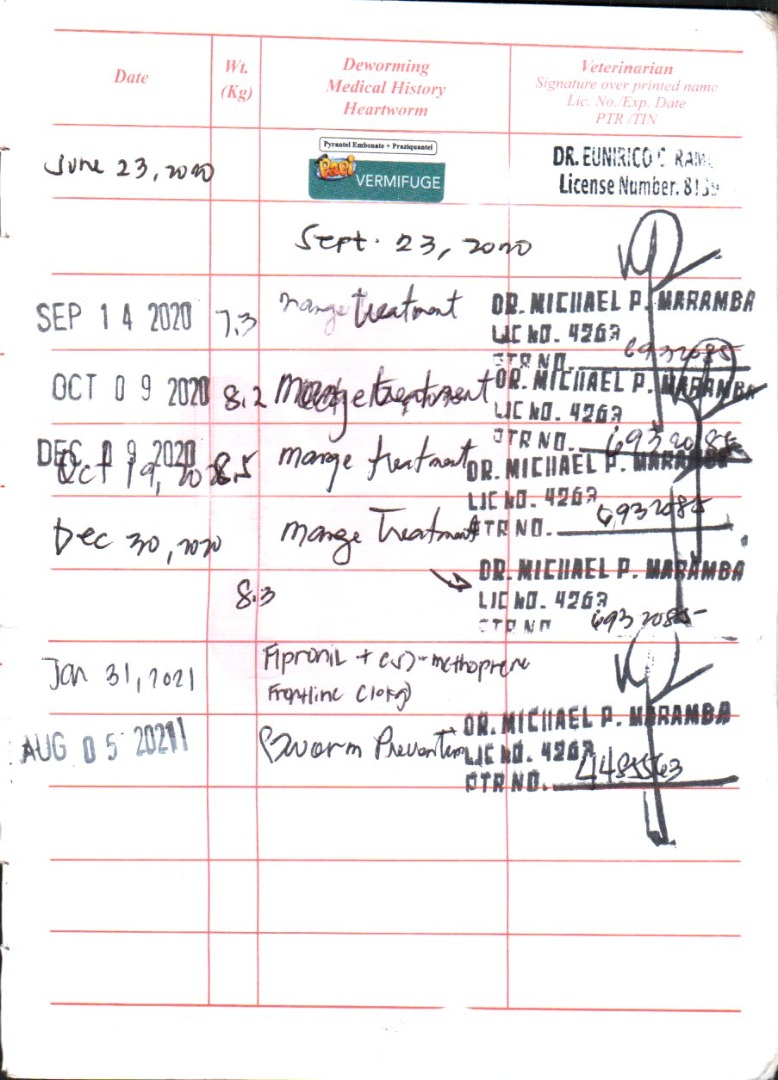 Date
Wt.
(Kg)
Deworming
Medical History
Heartworm
Veterinarian
Signature over printed name
Lic. No./Exp. Date
PTR /TIN
June 23, 2020
Pyrantel Embonate + Praziquantel
Papi
VERMIFUGE
DR. EUNIRICO C.
License Number.
Sept. 23, 2020
SEP 14 2020
7.3
mange treatment
DR. MICHAEL P. MARAMBA
LIC NO. 4263
PTR NO. 6932085
OCT 09 2020
8.2
mange treatment
DR. MICHAEL P. MARAMBA
LIC NO. 4263
PTR NO. 6932085
DEC 09 2020
Oct 19, 2020
8.5
mange treatment
DR. MICHAEL P. MARAMBA
LIC NO. 4263
PTR NO. 6932085
Dec 30, 2020
mange Treatment
8.3
DR. MICHAEL P. MARAMBA
LIC NO. 4263
PTR NO. 6932085
Jan 31, 2021
Fipronil + (s)-methoprene
Frontline (10kg)
AUG 05 2021
worm Prevention
DR. MICHAEL P. MARAMBA
LIC NO. 4263
PTR NO.